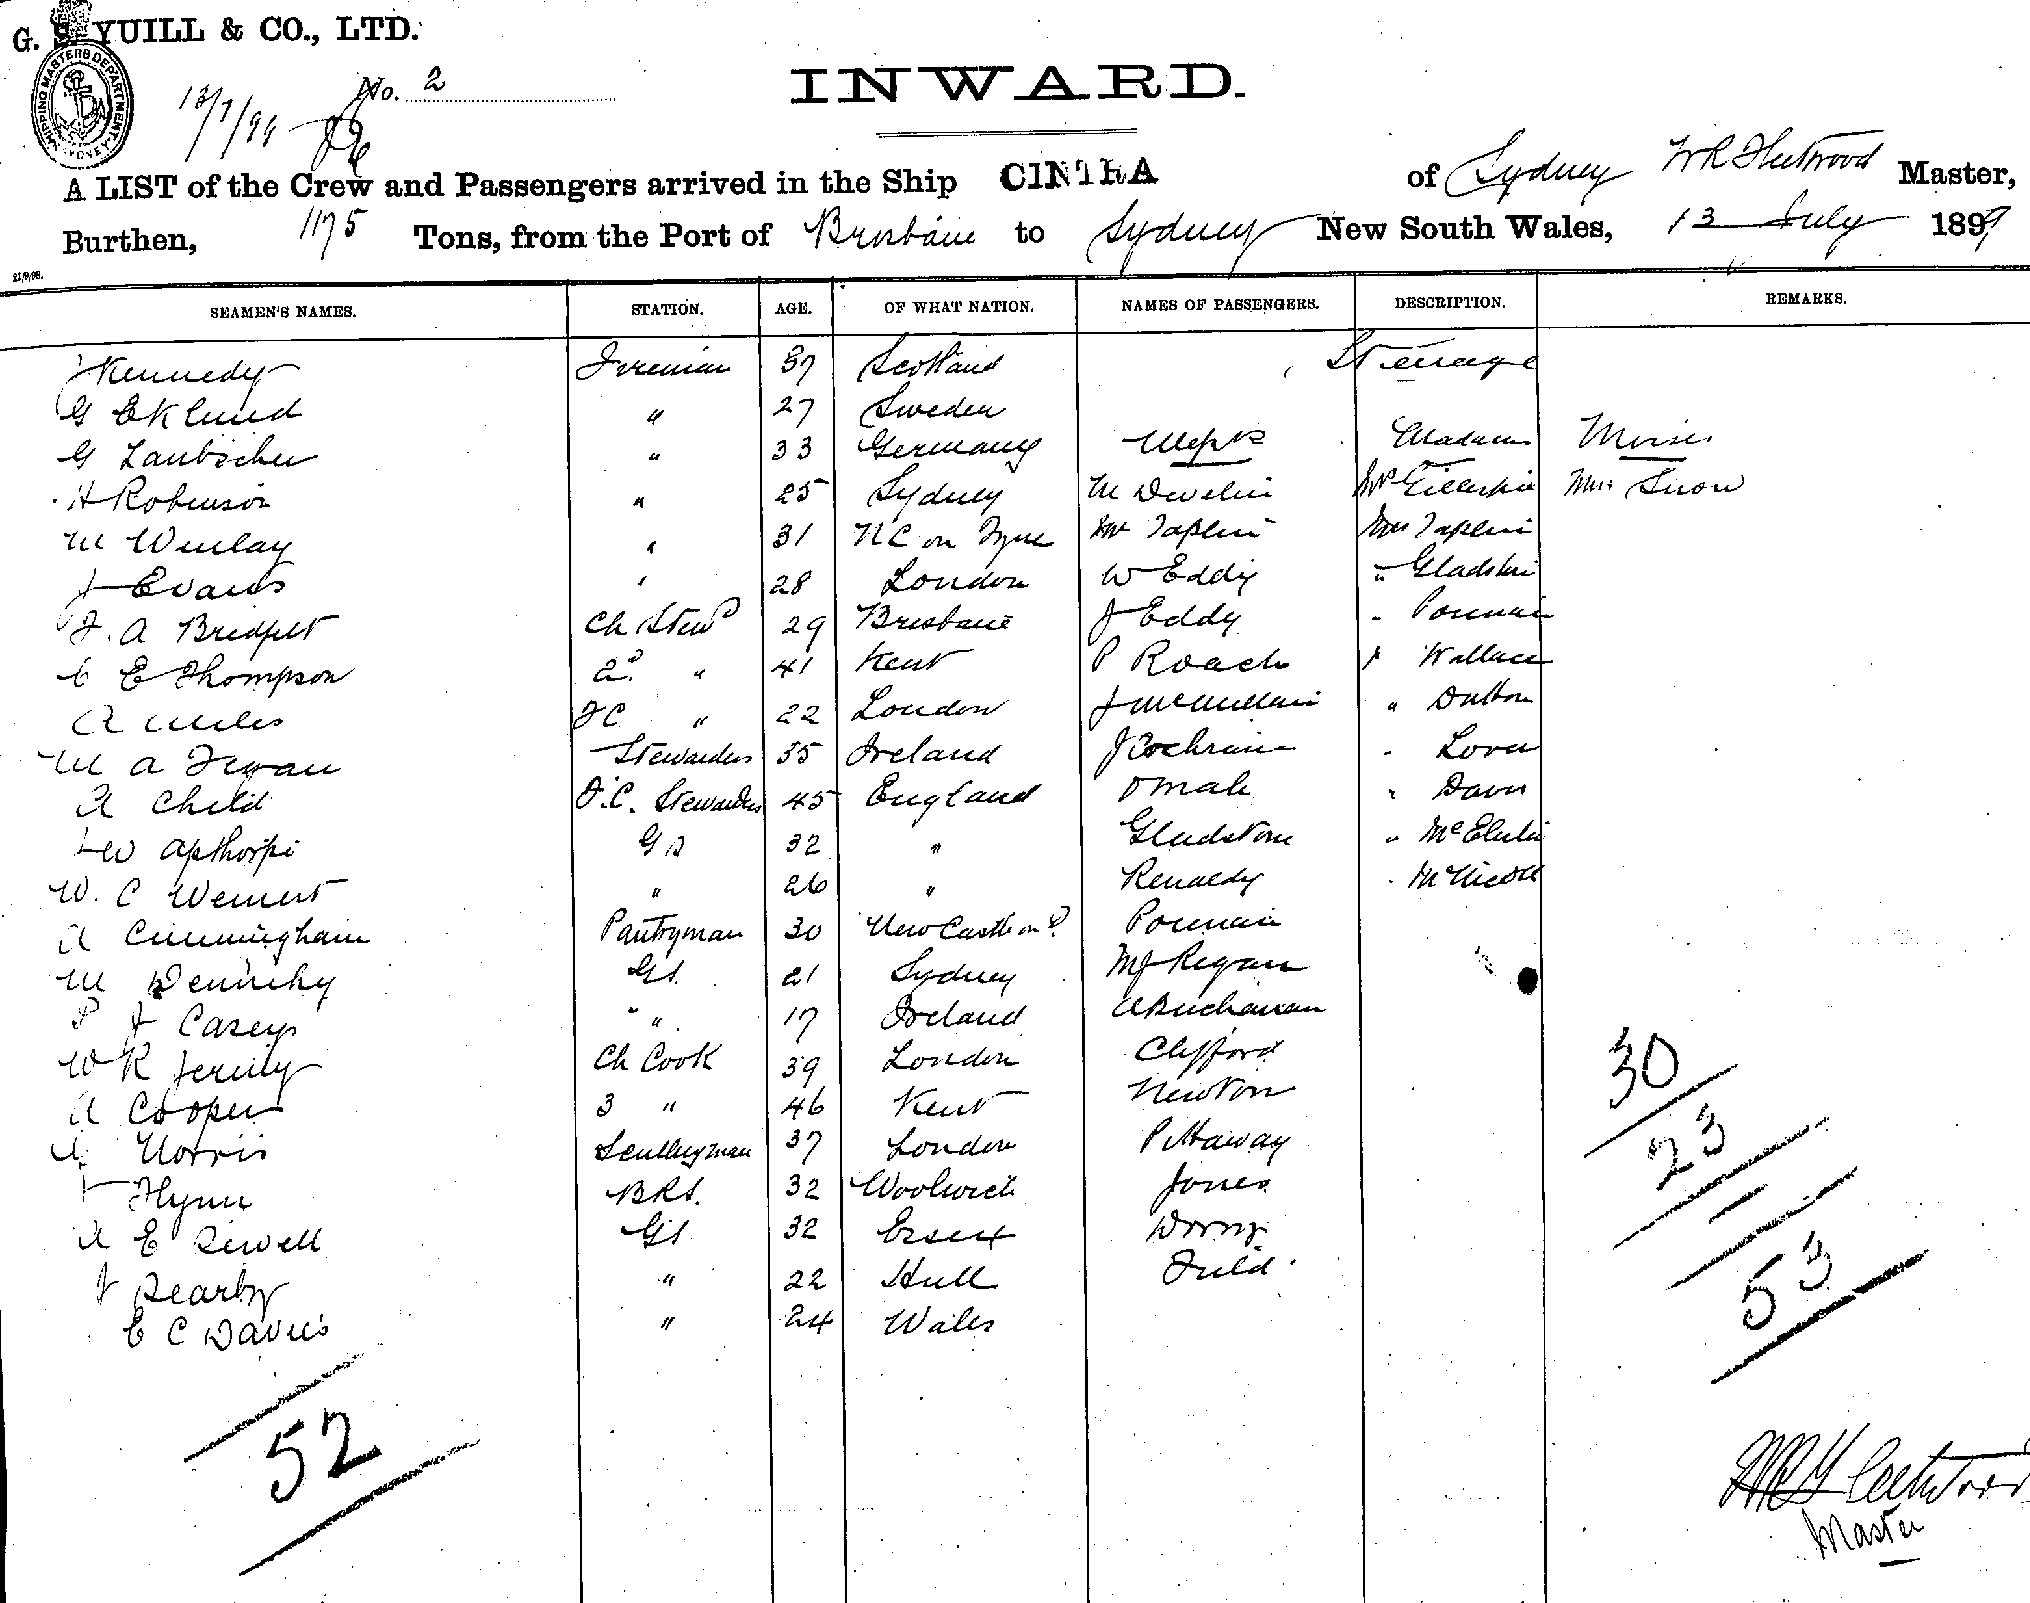 G. S. YUILL & CO., LTD.
SHIPPING MASTERS DEPARTMENT SYDNEY
No. 2
13/7/99
INWARD.
A LIST of the Crew and Passengers arrived in the Ship CINTRA of Sydney Master,
Burthen, 1175 Tons, from the Port of Brisbane to Sydney New South Wales, 13 July 1899
SEAMEN'S NAMES. STATION. AGE. OF WHAT NATION. NAMES OF PASSENGERS. DESCRIPTION. REMARKS.
J Kennedy Fireman 37 Scotland Steerage
G Eklund " 27 Sweden
G Laubscher " 33 Germany Messrs Madam Misses
H Robinson " 25 Sydney M Develin Mrs Gillespie Miss Snow
M Winlay " 31 NC on Tyne Mr Taplin Mrs Taplin
J Evans " 28 London W Eddy " Gladstone
F. A Bredfelt Ch Stewd 29 Brisbane J Eddy
C E Thompson 2d " 41 Kent P Roach " Wallace
A Miles FC " 22 London J McMullain " Dutton
M A Stewardess 35 Ireland J Cochrane
A Child F.C. Stewardess 45 England Omah
W Apthorpe GS 32 " Gladstone
W. C Weinert " 26 " Kennedy " McNicoll
A Cunningham Pantryman 30 New Castle on T.
M Dennehy GS. 21 Sydney MJ Regan
P J Casey " 17 Ireland A Buchanan
W R Ch Cook 39 London Clifford
A Cooper 3 " 46 Kent Newton
Norris Sculleryman 37 London Pittaway
J Flynn BRS. 32 Woolwich Jones
A E Sewell GS 32 Essex
J Dearby " 22 Hull
E C Davies " 24 Wales
30
23
53
52
Master